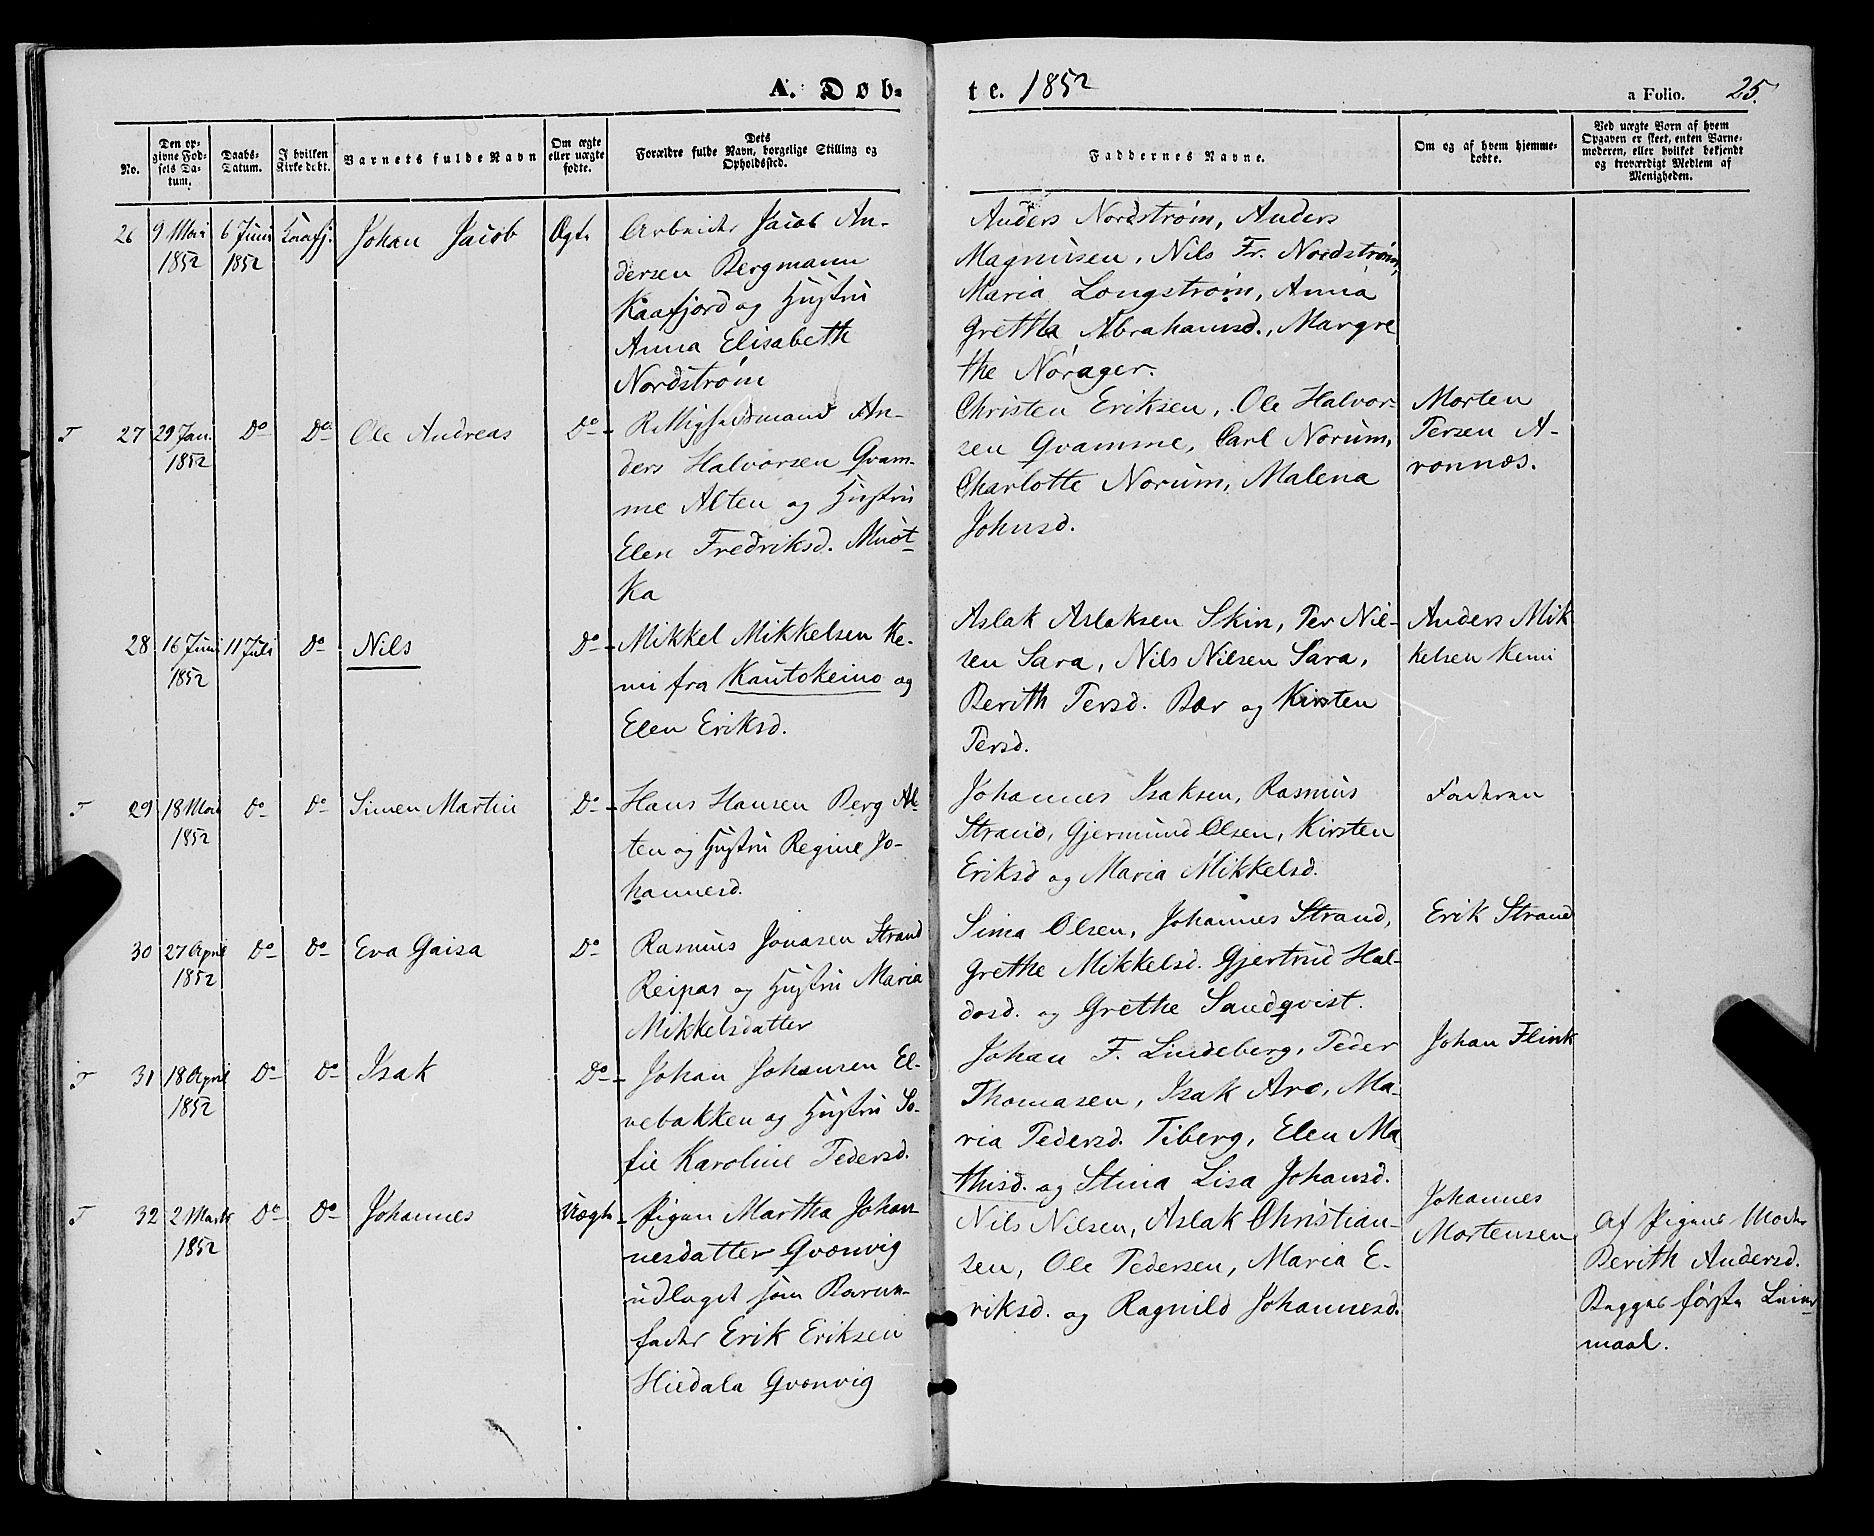 A. Døb-
te. 1852
a Folio. 25.
No.
Den opgivne Fødsels Datum.
Daabs-Datum.
I hvilken Kirke døbt.
Barnets fulde Navn
Om ægte eller uægte fødte.
Dets Forældre fulde Navn, borgelige Stilling og Opholdssted.
Faddernes Navne.
Om og af hvem hjemmedøbte.
Ved uægte Børn af hvem Opgaven er skeet, enten Barnemoderen, eller hvilket bekjendt og troværdigt Medlem af Menigheden.
26 9 Mai 1852 6 Juni 1852 Kaafj. Johan Jacob Ægte
Arbeider Jacob An-
dersen Bergmann
Kaafjord og Hustru
Anna Elisabeth
Nordstrøm
Anders Nordstrøm, Anders
Magnusen, Nils Fr. Nordstrøm,
Maria Longstrøm, Anna
Gretha Abrahamsd., Margre
the Norager.
T 27 29 Jan. 1852 Do Do Ole Andreas Do
Rettighedsmand An-
ders Halvorsen Qvam-
me Alten og Hustru
Elen Fredriksd. Muot-
ka
Christen Eriksen, Ole Halvor-
sen Qvamme, Carl Norum,
Charlotte Norum, Malena
Johnsd.
Morten
Persen A-
ronnæs.
28 16 Juni 1852 11 Juli Do Nils Do
Mikkel Mikkelsen Ke-
mi fra Kautokeino og
Elen Eriksd.
Aslak Aslaksen Skin, Per Nil-
sen Sara, Nils Nilsen Sara,
Berith Persd. Bær og Kirsten
Persd.
Anders Mik
kelsen Kemi
T 29 18 Mai 1852 Do Do Simen Martin Do
Hans Hansen Berg Al-
ten og Hustru Regine Jo-
hannesd.
Johannes Isaksen, Rasmus
Strand, Gjermund Olsen, Kirsten
Eriksd og Maria Mikkelsd.
Faderen
30 27 April 1852 Do Do Eva Gaisa Do
Rasmus Jonasen Strand
Reipas og Hustru Maria
Mikkelsdatter
Sima Olsen, Johannes Strand,
Grethe Mikkelsd. Gjertrud Hal-
dosd. og Grethe Sandqvist.
Erik Strand
T 31 18 April 1852 Do Do Isak Do
Johan Johansen El-
vebakken og Hustru So-
fie Karoline Pedersd.
Johan F. Lindeberg, Peder
Thomasen, Isak Aro, Ma-
ria Pedersd. Tiberg, Elen Ma
thisd. og Stina Lisa Johansd.
Johan Flink
T 32 2 Marts 1852 Do Do Johannes Uægte
Pigen Martha Johan-
nesdatter Qvænvig
udlagt som Barne-
fader Erik Eriksen
Hiedala Qvænvig
Nils Nilsen, Aslak Christian-
sen, Ole Pedersen, Maria E-
riksd. og Ragnild Johannesd.
Johannes
Mortensen
Af Pigens Moder
Berith Andersd.
Begges første Leier-
maal.